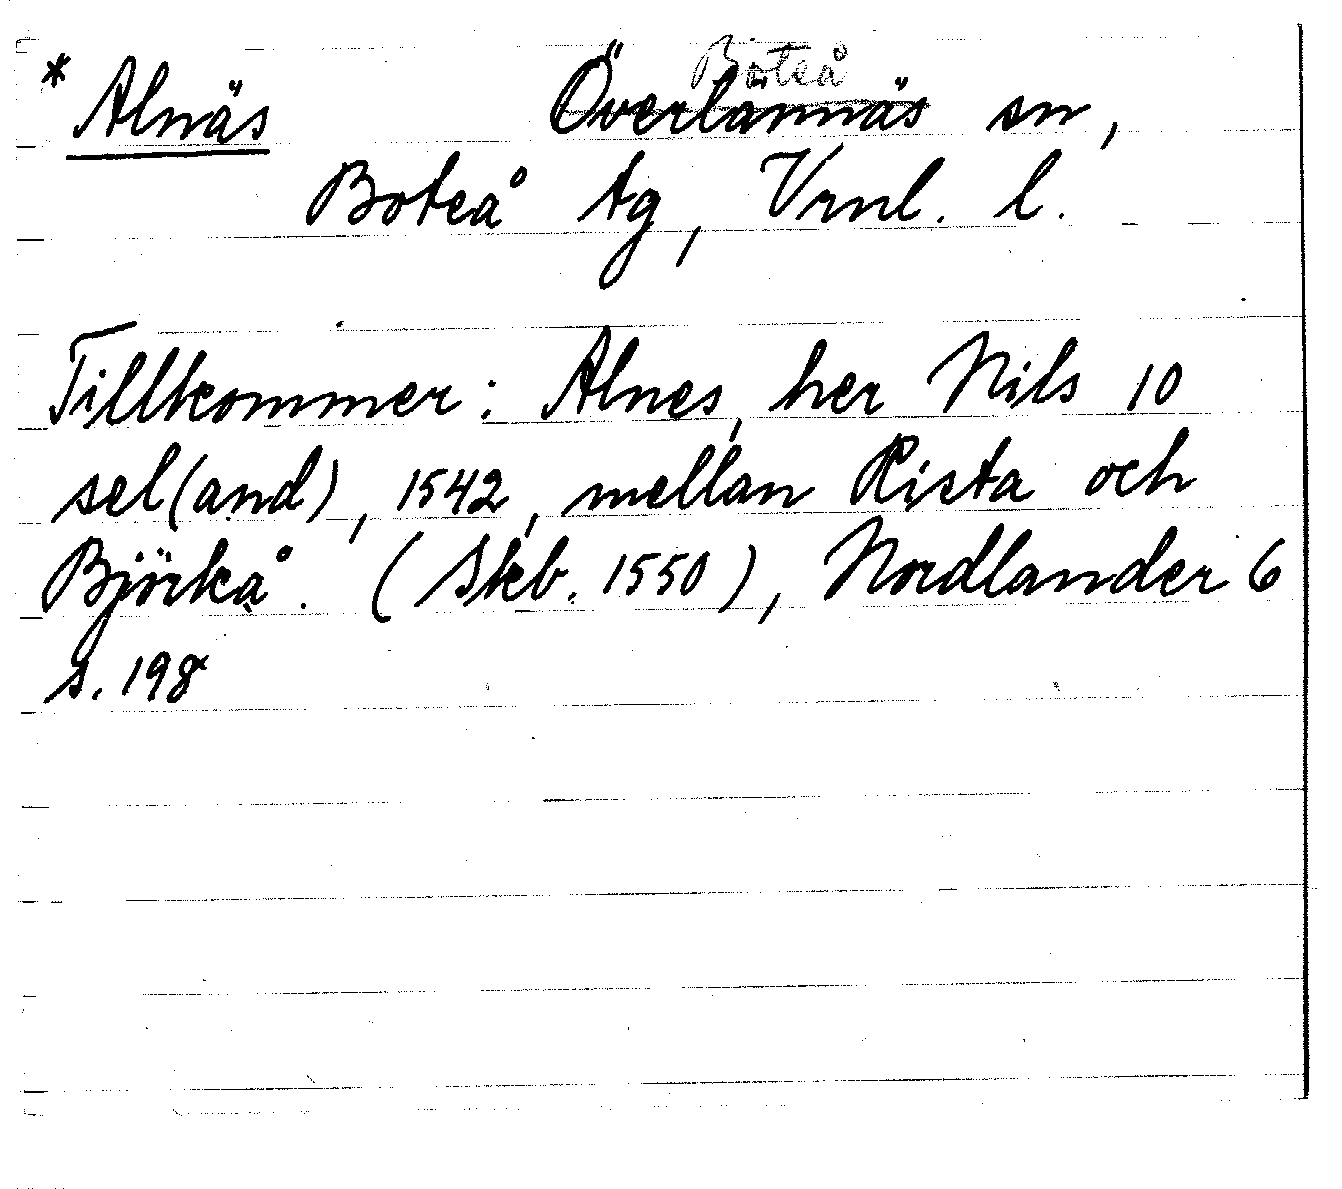 Boteå
* Alnäs Överlännäs sn,
Boteå tg, Vrnl. l.
Tillkommer: Alnes, her Nils 10
sel(and), 1542, mellan Rista och
Björkå. (Skb. 1550), Nordlander 6
s. 198